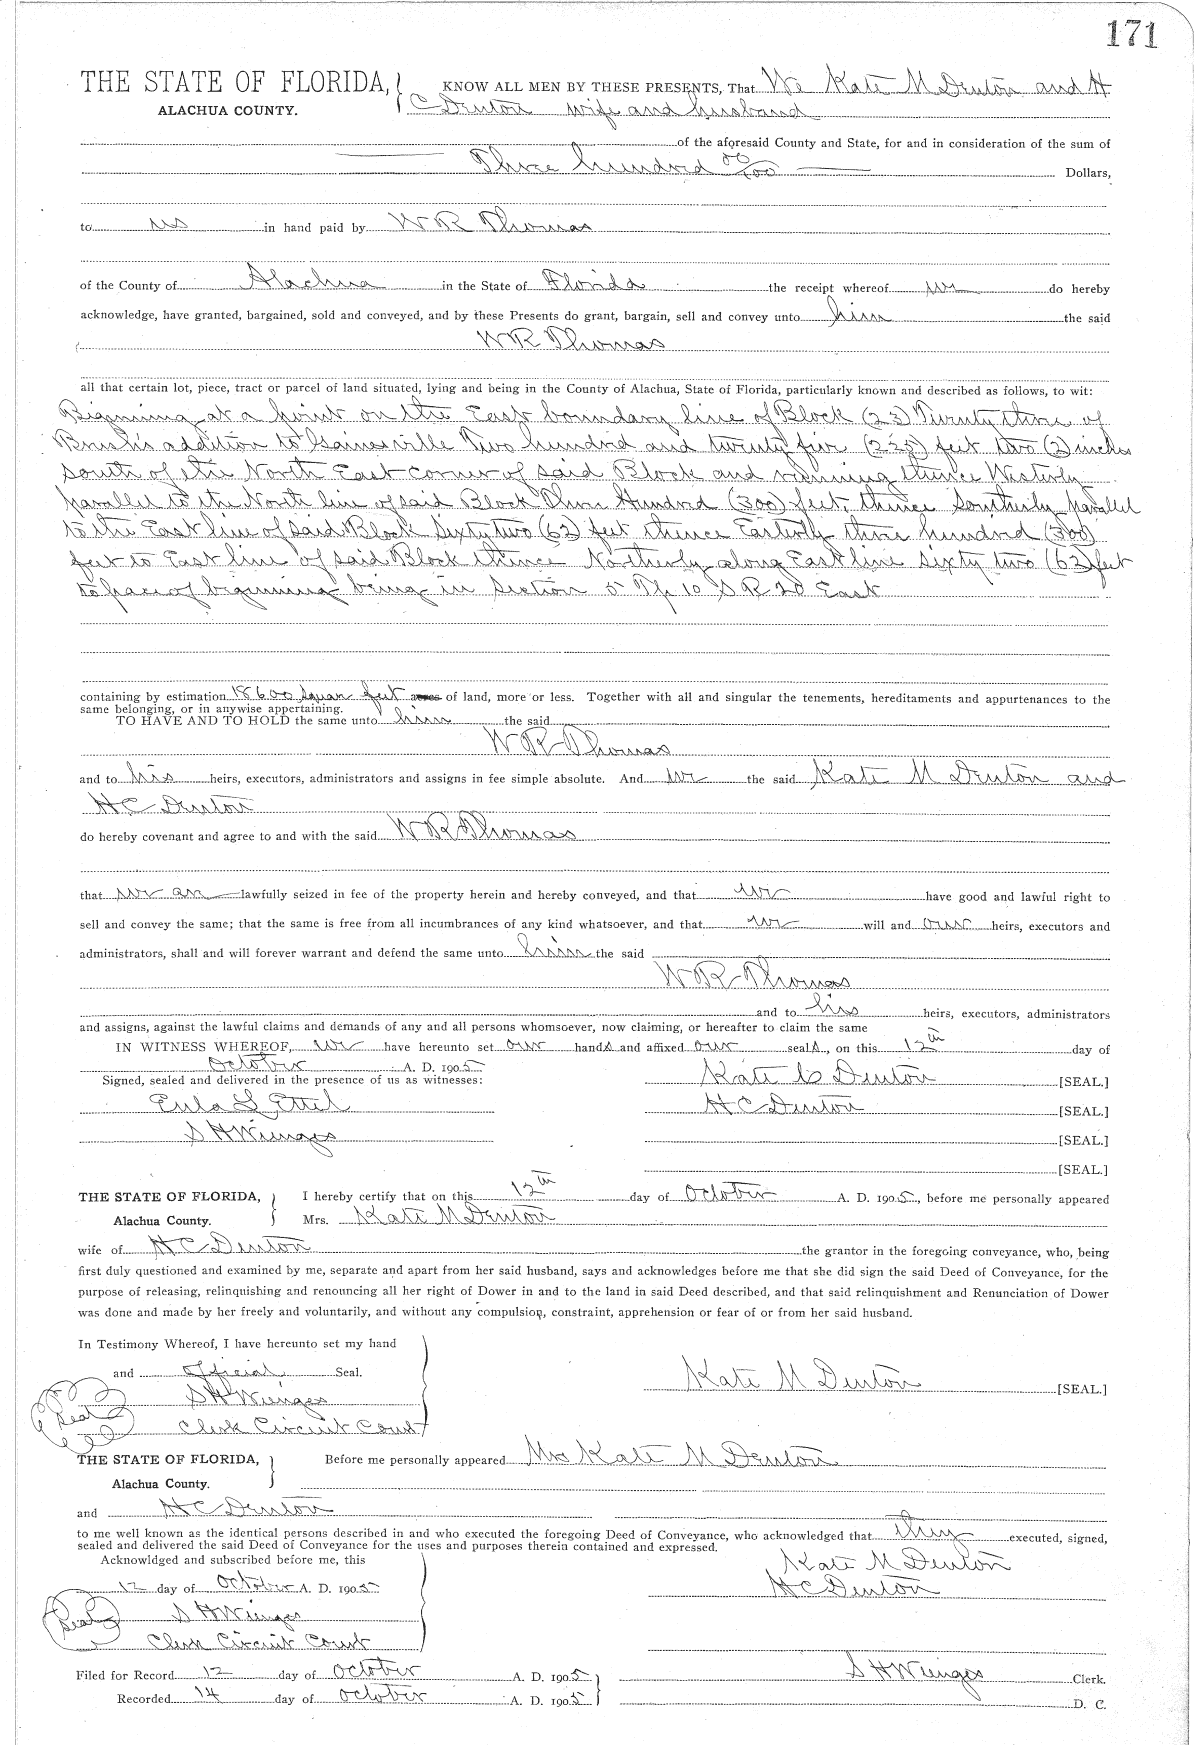 171
THE STATE OF FLORIDA, KNOW ALL MEN BY THESE PRESENTS, That We Kate M Denton and H
ALACHUA COUNTY. C Denton wife and husband
of the aforesaid County and State, for and in consideration of the sum of
Three hundred 00/100 Dollars,
to us in hand paid by W R Thomas
of the County of Alachua in the State of Florida the receipt whereof we do hereby
acknowledge, have granted, bargained, sold and conveyed, and by these Presents do grant, bargain, sell and convey unto him the said
W R Thomas
all that certain lot, piece, tract or parcel of land situated, lying and being in the County of Alachua, State of Florida, particularly known and described as follows, to wit:
Biginning at a point on the East boundary line of Block (23) Twenty three of
Brush's addition to Gainesville Two hundred and twenty five (225) feet two (2) inches
South of the North East corner of said Block and running thence Westerly
parallel to the North line of said Block Three Hundred (300) feet, thence Southerly parallel
to the East line of said Block Sixty two (62) feet thence Easterly three hundred (300)
feet to East line of said Block thence Northerly along East line sixty two (62) feet
to place of biginning being in Section 5 Tp 10 S R 20 East
containing by estimation 18600 Square feet acres of land, more or less. Together with all and singular the tenements, hereditaments and appurtenances to the
same belonging, or in anywise appertaining.
TO HAVE AND TO HOLD the same unto him the said
W R Thomas
and to his heirs, executors, administrators and assigns in fee simple absolute. And we the said Kate M Denton and
H C Denton
do hereby covenant and agree to and with the said W R Thomas
that we are lawfully seized in fee of the property herein and hereby conveyed, and that we have good and lawful right to
sell and convey the same; that the same is free from all incumbrances of any kind whatsoever, and that we will and our heirs, executors and
administrators, shall and will forever warrant and defend the same unto him the said
W R Thomas
and to his heirs, executors, administrators
and assigns, against the lawful claims and demands of any and all persons whomsoever, now claiming, or hereafter to claim the same
IN WITNESS WHEREOF, we have hereunto set our hands and affixed our seals, on this 12th day of
October A. D. 1905
Signed, sealed and delivered in the presence of us as witnesses: Kate C Denton [SEAL.]
Eula L Ettel H C Denton [SEAL.]
S H Wienges [SEAL.]
[SEAL.]
THE STATE OF FLORIDA, I hereby certify that on this 12th day of October A. D. 1905, before me personally appeared
Alachua County. Mrs. Kate M Denton
wife of H C Denton the grantor in the foregoing conveyance, who, being
first duly questioned and examined by me, separate and apart from her said husband, says and acknowledges before me that she did sign the said Deed of Conveyance, for the
purpose of releasing, relinquishing and renouncing all her right of Dower in and to the land in said Deed described, and that said relinquishment and Renunciation of Dower
was done and made by her freely and voluntarily, and without any compulsion, constraint, apprehension or fear of or from her said husband.
In Testimony Whereof, I have hereunto set my hand
and official Seal. Kate M Denton [SEAL.]
S H Wienges
Seal Clerk Circuit Court
THE STATE OF FLORIDA, Before me personally appeared Mrs Kate M Denton
Alachua County.
and H C Denton
to me well known as the identical persons described in and who executed the foregoing Deed of Conveyance, who acknowledged that they executed, signed,
sealed and delivered the said Deed of Conveyance for the uses and purposes therein contained and expressed.
Acknowldged and subscribed before me, this Kate M Denton
12 day of October A. D. 1905 H C Denton
Seal S H Wienges
Clerk Circuit Court
Filed for Record 12 day of October A. D. 1905 S H Wienges Clerk.
Recorded 14 day of October A. D. 1905 D. C.